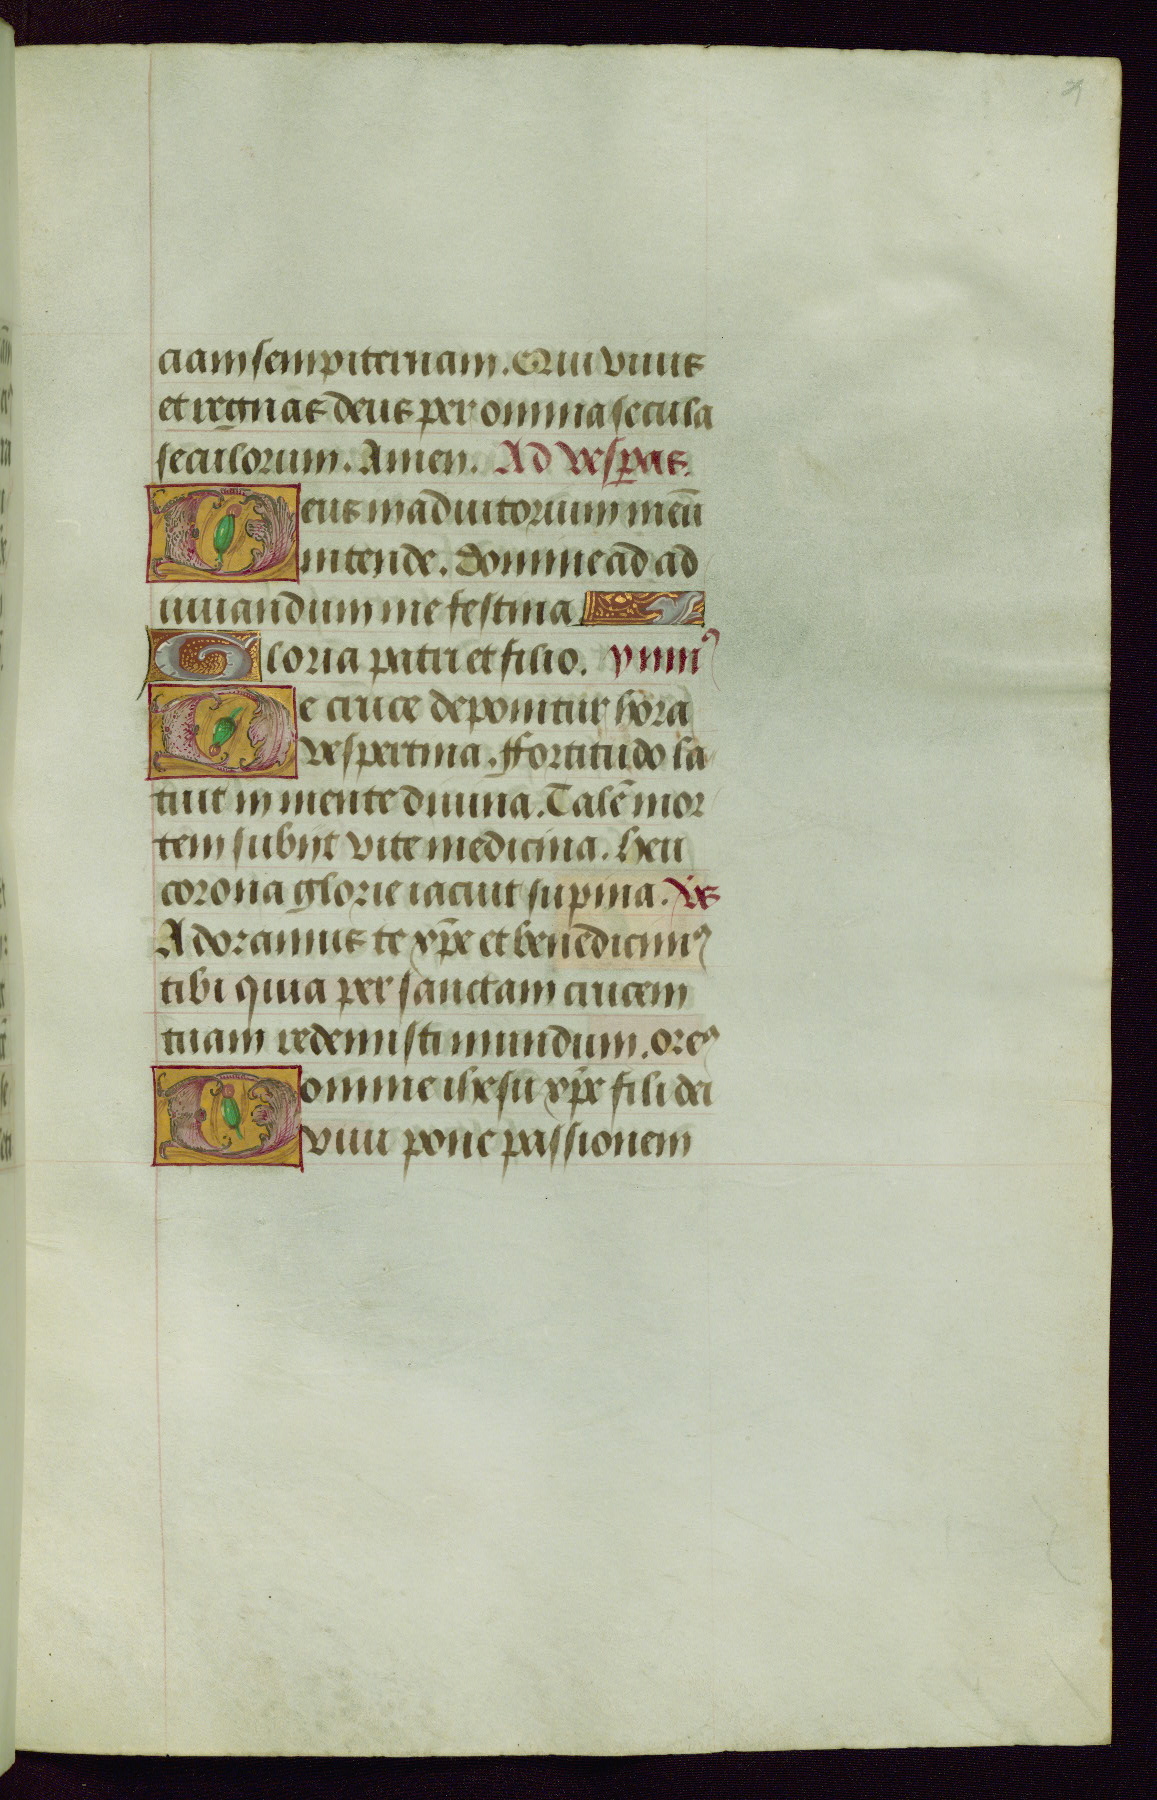 ciam sempiternam. Qui viuis
et regnas deus per omnia secula
seculorum. Amen. Ad vesꝑas.
Deus in adiutorium meū
intende. Domine ad ad
iuuandum me festina.
Gloria patri et filio. ymnꝰ
De cruce deponitur hora
vespertina. Ffortitudo la
tuit in mente diuina. Talē mor
tem subijt vite medicina. heu
corona glorie iacuit supina. v̄s
Adoramus te xp̄e et benedicimꝰ
tibi quia per sanctam crucem
tuam redemisti mundum. oreꝰ
Domine ihesu xp̄e fili dei
viui pone passionem